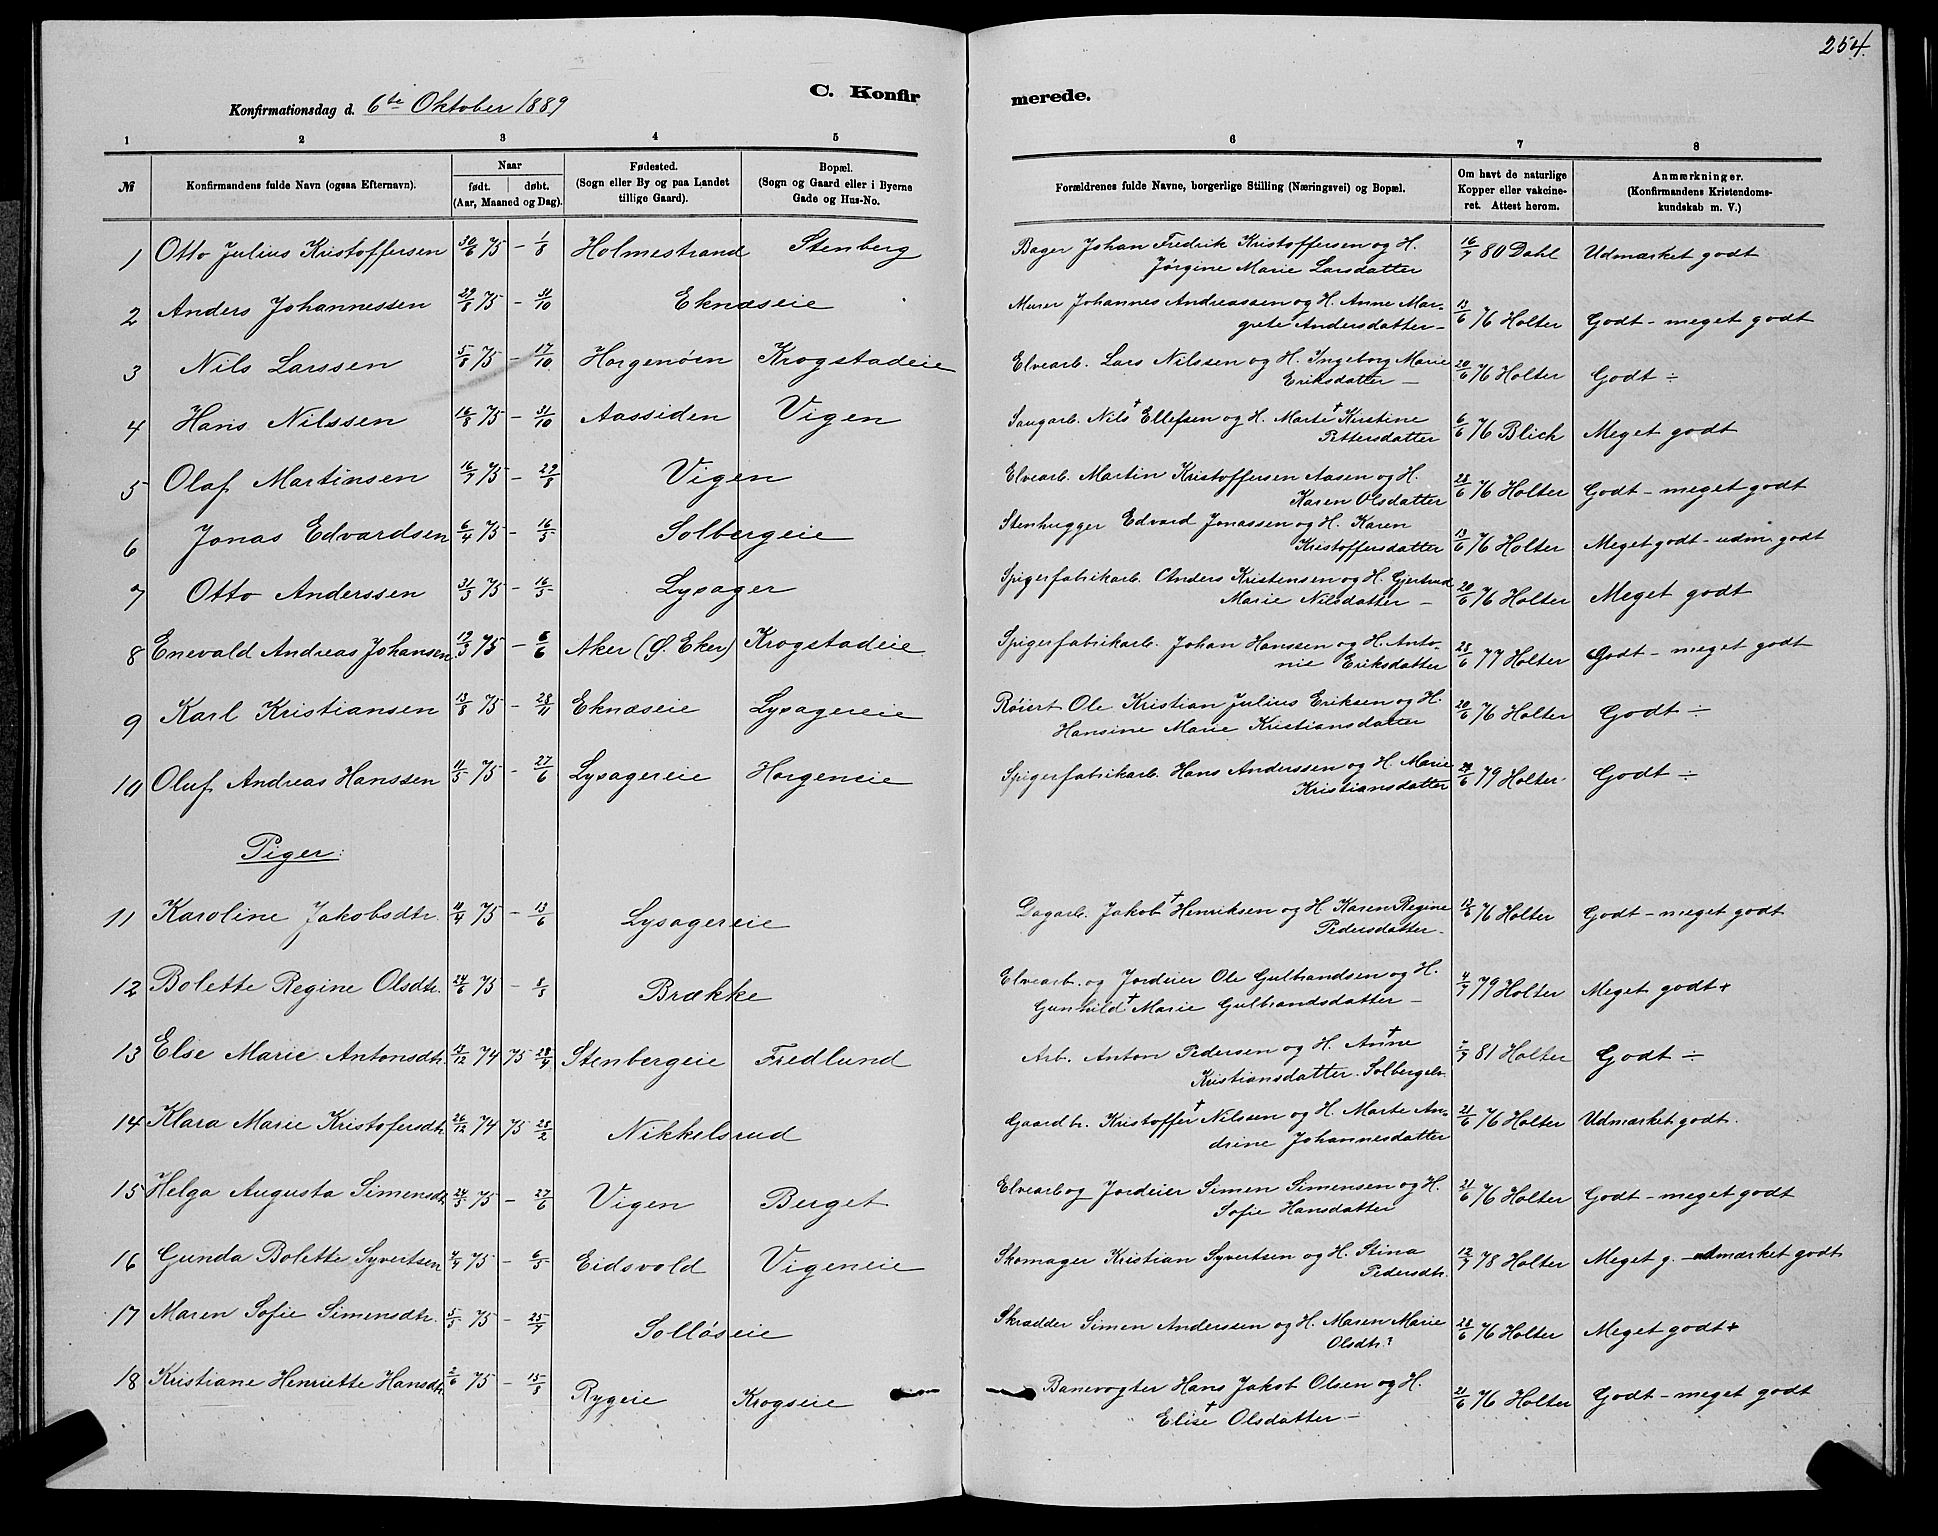 254.
Konfirmationsdag d. 6te Oktober 1889
C. Konfirmerede.
1 2 3 4 5 6 7 8
№ Konfirmandens fulde Navn (ogsaa Efternavn). Naar født. døbt. (Aar, Maaned og Dag). Fødested. (Sogn eller By og paa Landet tillige Gaard). Bopæl. (Sogn og Gaard eller i Byerne Gade og Hus-No. Forældrenes fulde Navne, borgerlige Stilling (Næringsvei) og Bopæl. Om havt de naturlige Kopper eller vakcineret. Attest herom. Anmærkninger. (Konfirmandens Kristendomskundskab m. V.)
1 Otto Julius Kristoffersen 30/6 75 – 1/8 Holmestrand Stenberg Bager Johan Fredrik Kristoffersen og H. Jørgine Marie Larsdatter 16/7 80 Dahl Udmærket godt
2 Anders Johannessen 29/8 75 – 31/10 Eknæseie Murer Johannes Andreassen og H. Anne Margrete Andersdatter – 13/6 76 Holter Godt – meget godt
3 Nils Larssen 5/8 75 – 17/10 Horgenøen Krogstadeie Elvearb. Lars Nilssen og H. Ingeborg Marie Eriksdatter – 20/6 76 Holter Godt ÷
4 Hans Nilssen 16/8 75 – 31/10 Aassiden Vigen Saugarb. Nils † Ellefsen og H. Marte † Kirstine Pettersdatter 6/6 76 Blich Meget godt
5 Olaf Martinsen 16/7 75 – 29/8 Vigen Elvearb. Martin Kristoffersen Aasen og H. Karen Olsdatter 28/6 76 Holter Godt – meget godt
6 Jonas Edvardsen 6/4 75 – 16/5 Solbergeie Stenhugger Edvard Jonassen og H. Karen Kristoffersdatter 13/6 76 Holter Meget godt – udm. godt
7 Otto Anderssen 31/3 75 – 16/5 Lysager Spigerfabrikarb. Anders Kristensen og H. Gjertrud Marie Nilsdatter – 20/6 76 Holter Meget godt
8 Enevald Andreas Johansen 19/3 75 – 6/6 Aker (Ø. Eker) Krogstadeie Spigerfabrikarb. Johan Hanssen og H. Antonie Eriksdatter 28/6 77 Holter Godt – meget godt
9 Karl Kristiansen 13/8 75 – 28/11 Eknæseie Lysagereie Røiert Ole Kristian Julius Eriksen og H. Hansine Marie Kristiansdatter 20/6 76 Holter Godt ÷
10 Oluf Andreas Hanssen 11/5 75 – 27/6 Lysagereie Horgeneie Spigerfabrikarb. Hans Anderssen og H. Marie Kristiansdatter /6 79 Holter Godt ÷
Piger:
11 Karoline Jakobsdtr. 11/4 75 – 13/6 Lysagereie Dagarb. Jakob † Henriksen og H. Karen Regine Pedersdatter – 13/6 76 Holter Godt – meget godt
12 Bolette Regine Olsdtr. 24/6 75 – 8/8 Brække Elvearb. og Jordeier Ole Gulbrandsen og H. Gunhild † Marie Gulbrandsdatter – 4/7 79 Holter Meget godt +
13 Else Marie Antonsdtr. 13/12 74 75 28/4 Stenbergeie Fredlund Arb. Anton Pedersen og H. Anne † Kristiansdatter. Solbergelv. 7/7 81 Holter Godt ÷
14 Klara Marie Kristofersdtr. 26/12 74 75 28/2 Nikkelsrud Gaardbr. Kristoffer † Nilssen og H. Marte Andrine Johannesdatter 21/6 76 Holter Udmærket godt.
15 Helga Augusta Simensdtr. 24/5 75 – 27/6 Vigen Berget Elvearb og Jordeier Simen Simensen og H. Sofie Hansdatter 21/6 76 Holter Godt – meget godt
16 Gunda Bolette Syvertsen 4/4 75 – 6/5 Eidsvold Vigeneie Skomager Kristian Syvertsen og H. Stina Pedersdtr. 12/7 78 Holter Meget g. – udmærket godt
17 Maren Sofie Simensdtr. 5/5 75 – 25/7 Solløseie Skrædder Simen Anderssen og H. Maren Marie Olsdtr. 28/6 76 Holter Meget godt +
18 Kristiane Henriette Hansdtr. 2/6 75 – 15/8 Rygeie Krogseie Banevogter Hans Jakob Olsen og H. Elise † Olsdatter – 21/6 76 Holter Godt – meget godt